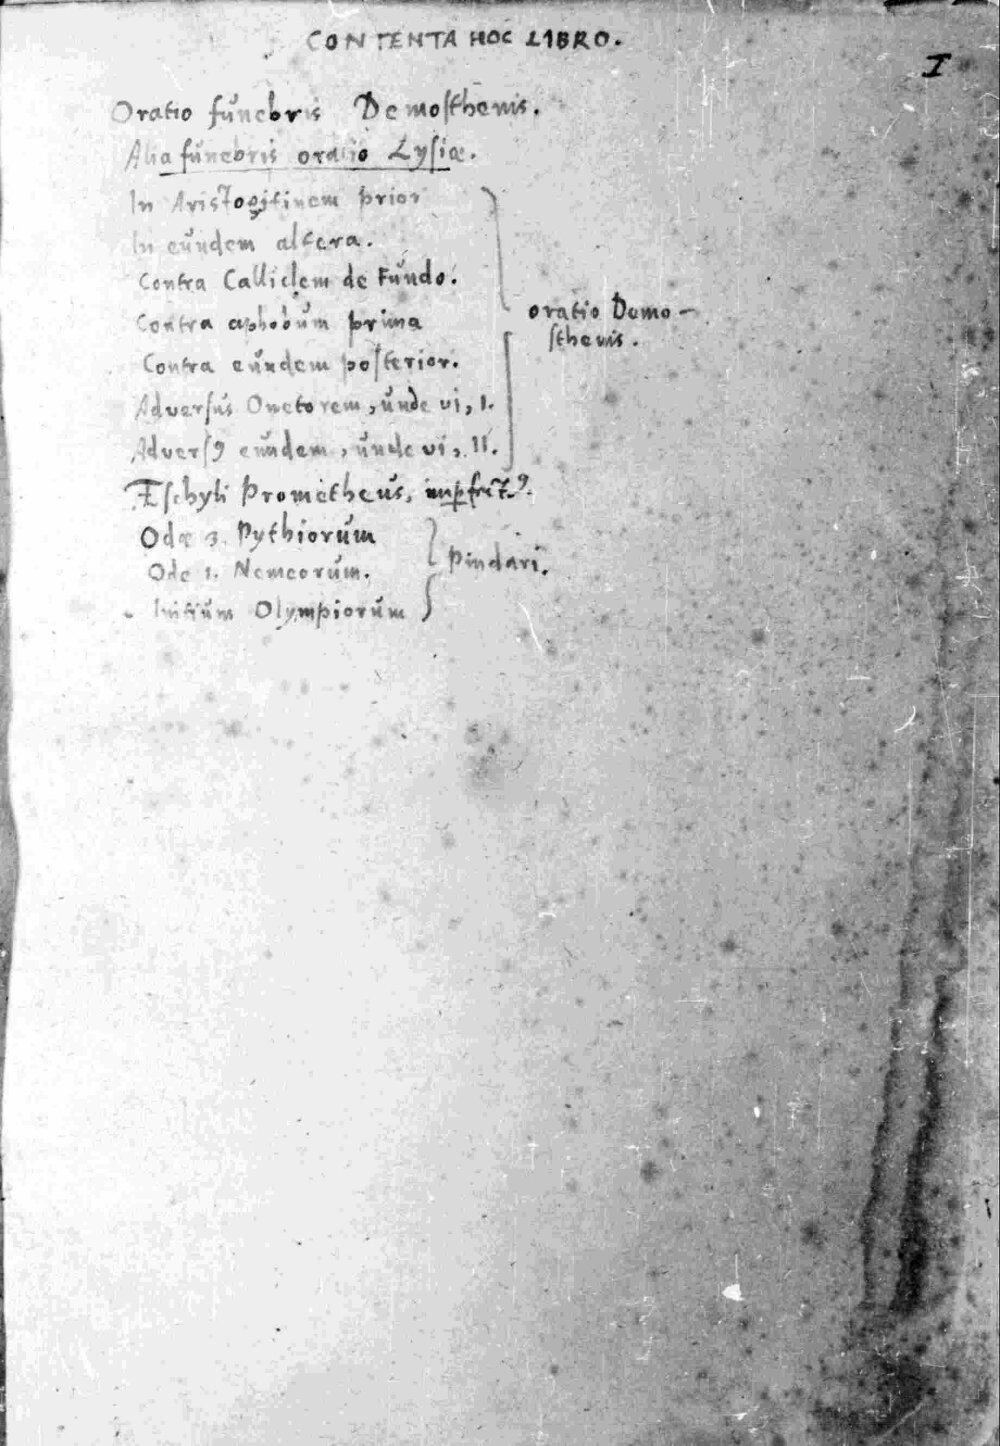 CONTENTA HOC LIBRO.
I
Oratio funebris Demosthenis.
Alia funebris oratio Lysiæ.
In Aristogitinem prior
In eundem altera.
Contra Calliclem de Fundo.
Contra aphobum prima
Contra eundem posterior.
Adversus Onetorem, unde vi, I.
Adversꝯ eundem, unde vi, II.
oratio Demo-
sthenis.
Æschyli Prometheus,
Odæ 3. Pythiorum
Ode 1. Nemeorum.
Initium Olympiorum
Pindari.